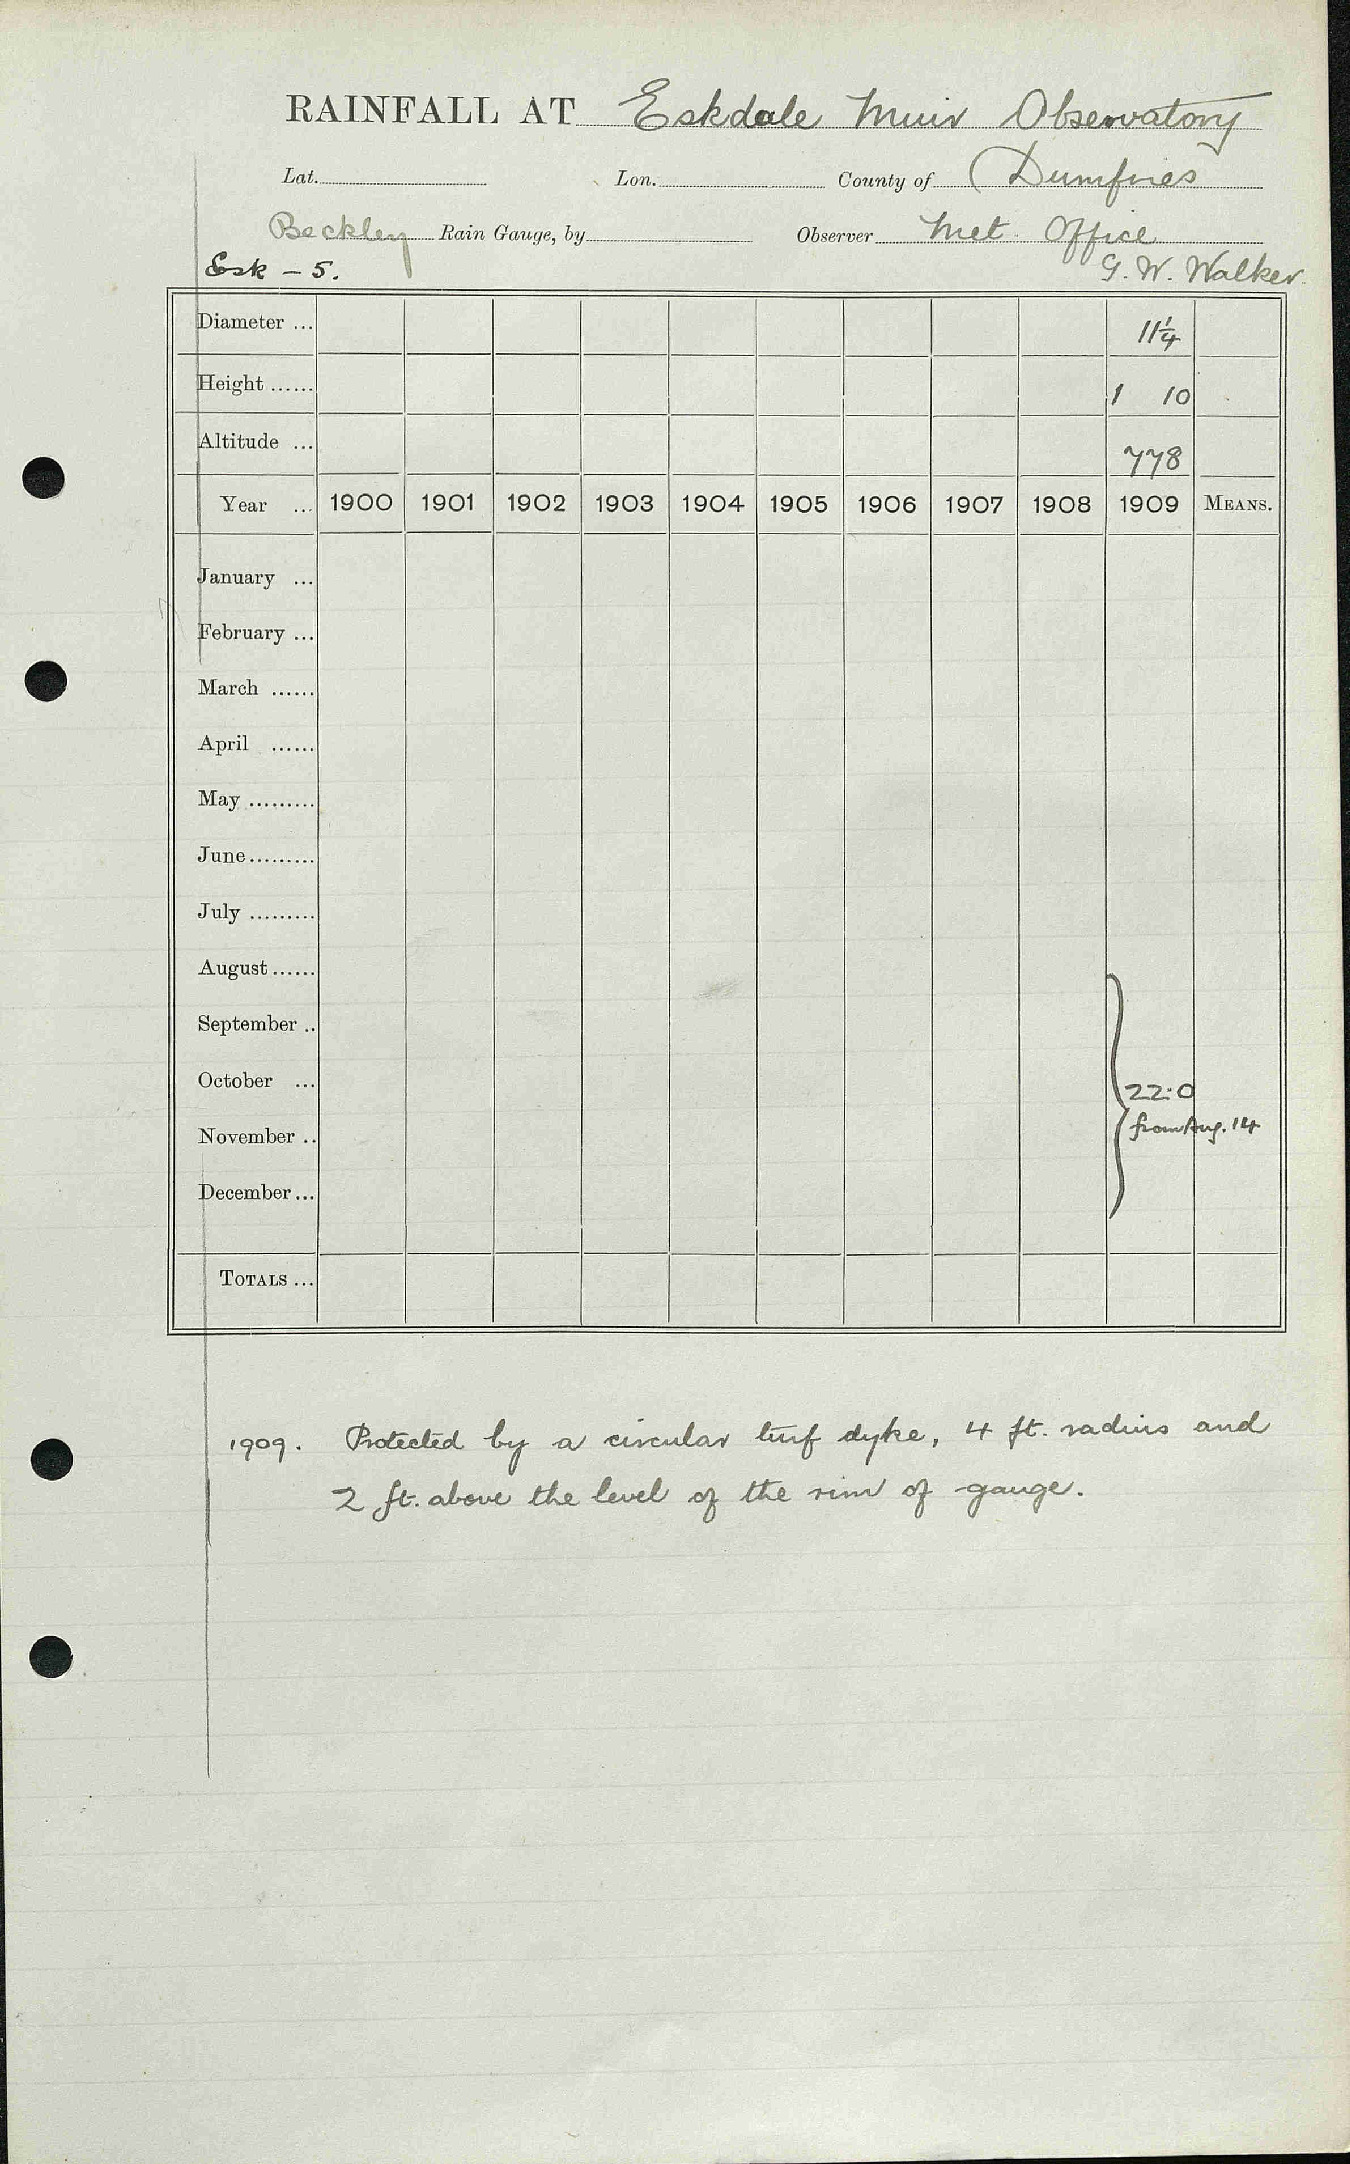 RAINFALL AT Eskdale Muir Observatory
Lat. Lon. County of Dumfries
Beckley Rain Gauge, by Observer Met. Office
Esk - 5. G. W. Walker.
Diameter ... 11¼
Height ...... 1 10
Altitude ... 778
Year ... 1900 1901 1902 1903 1904 1905 1906 1907 1908 1909 MEANS.
January ...
February ...
March ......
April ......
May .........
June.........
July .........
August......
September ..
October ... 22.0
November .. from Aug. 14
December...
TOTALS ...
1909. Protected by a circular turf dyke, 4 ft. radius and
2 ft. above the level of the rim of gauge.